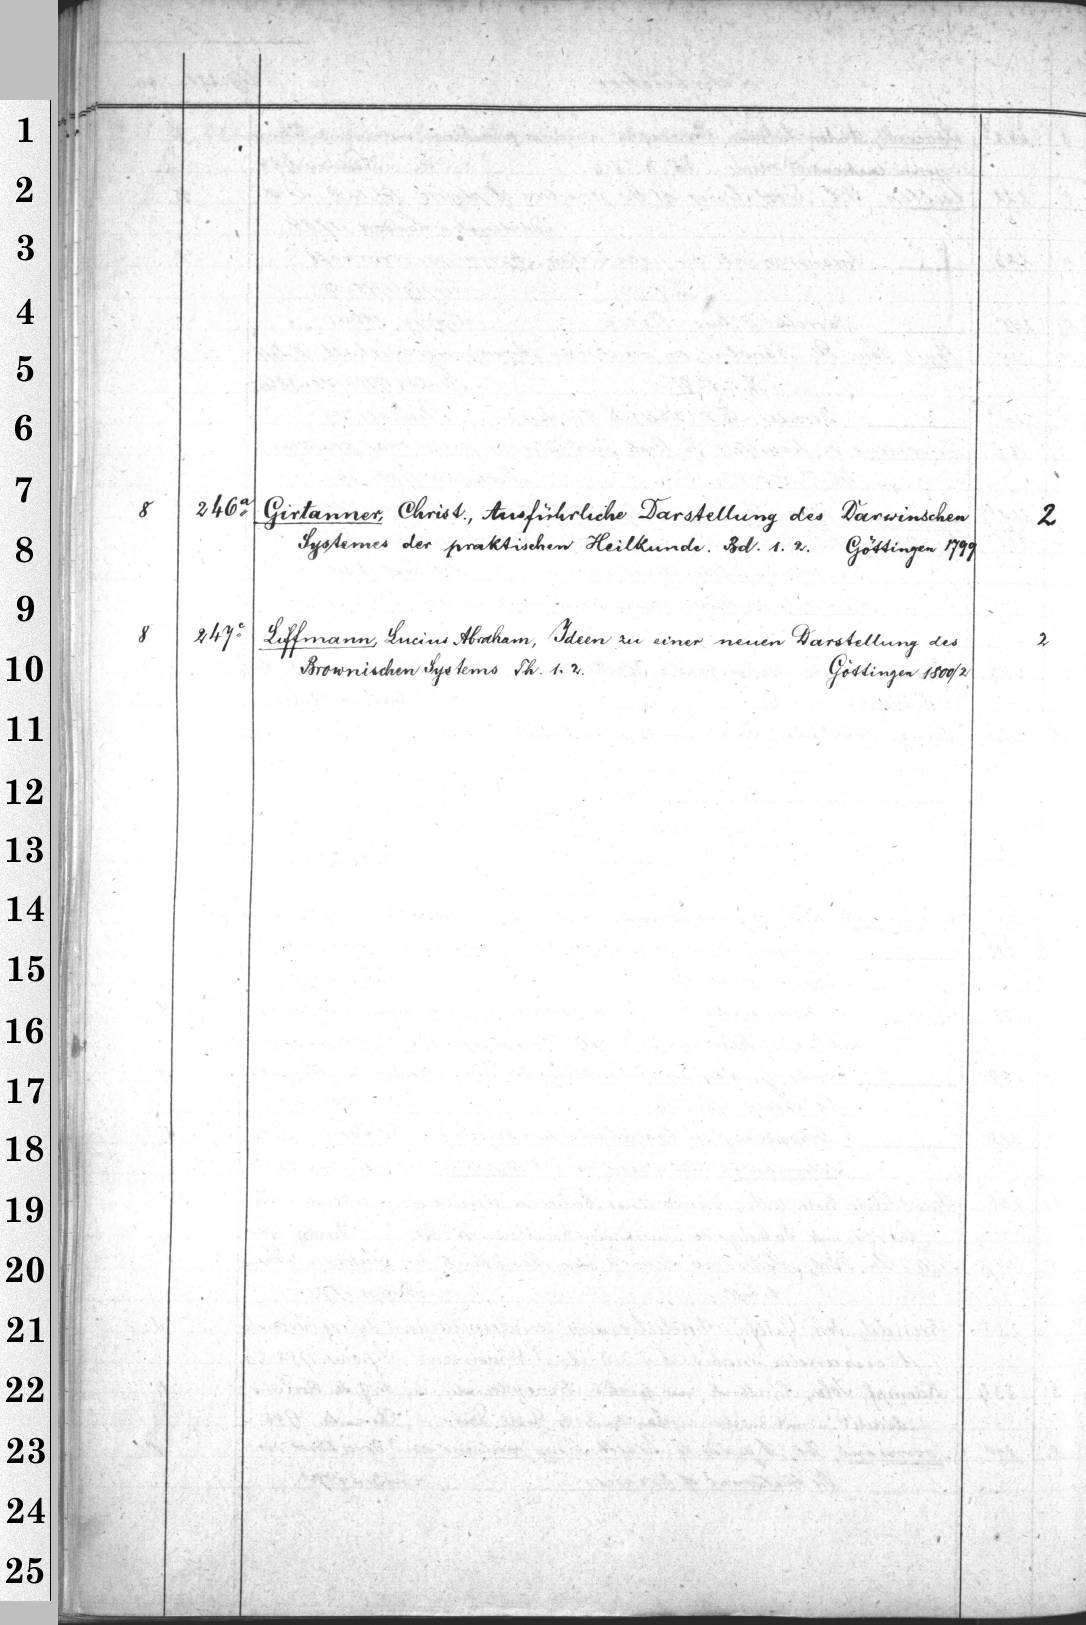 1
2
3
4
5
6
7
8 246a. Girtanner, Christ., Ausführliche Darstellung des Darwinschen 2
8
Systemes der praktischen Heilkunde. Bd. 1. 2. Göttingen 1799
9
8 247c. Liffmann, Lucius Abraham, Ideen zu einer neuen Darstellung des 2
10
Brownischen Systems Th. 1. 2. Göttingen 1800/2
11
12
13
14
15
16
17
18
19
20
21
22
23
24
25